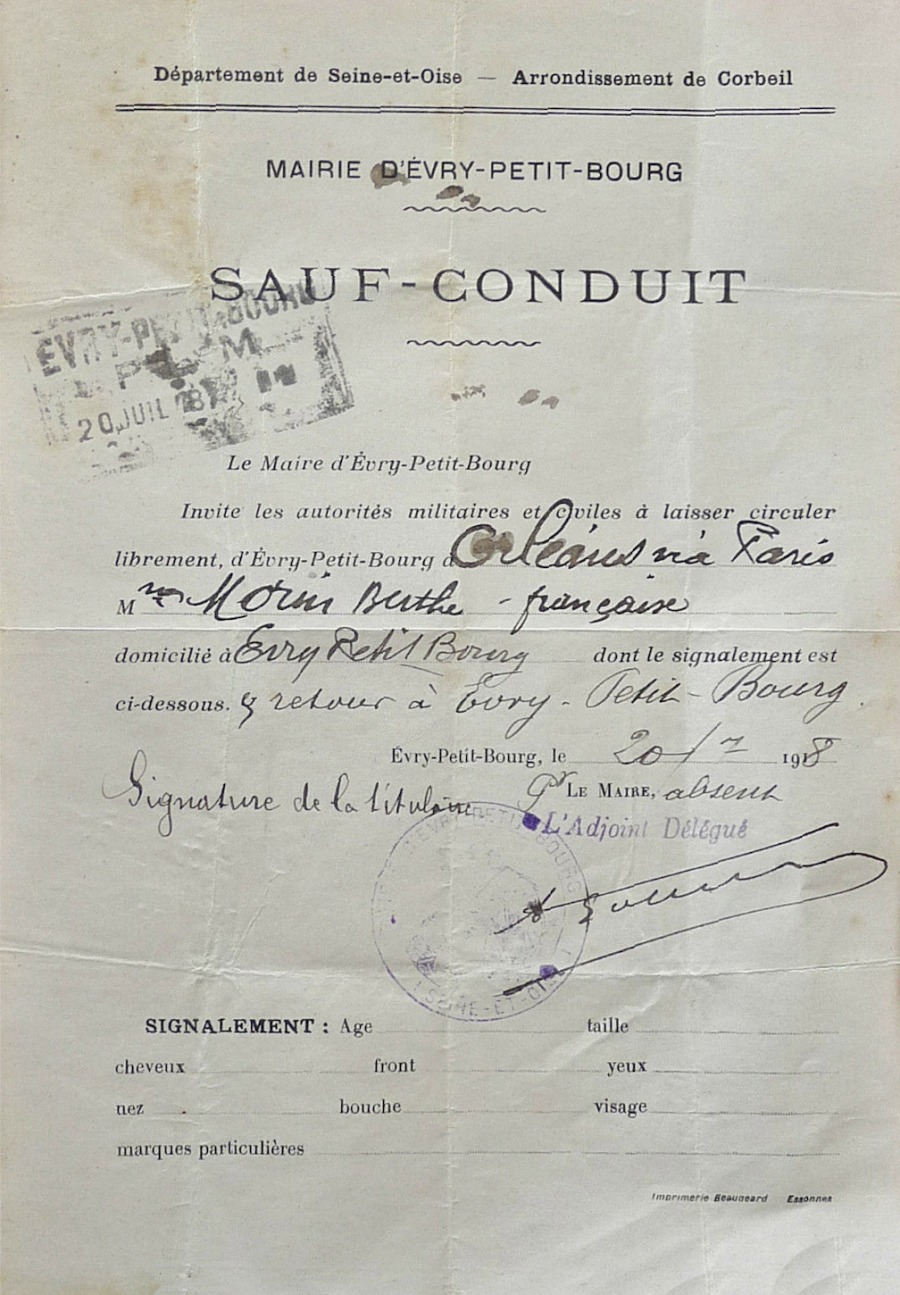 Département de Seine-et-Oise — Arrondissement de Corbeil
MAIRIE D'ÉVRY-PETIT-BOURG
SAUF-CONDUIT
ÉVRY-PETIT-BOURG
P. L. M.
20 JUIL 18
Le Maire d'Évry-Petit-Bourg
Invite les autorités militaires et civiles à laisser circuler
librement, d'Évry-Petit-Bourg à Orléans via Paris
Mme Morin Berthe - française
domicilié à Evry Petit Bourg dont le signalement est
ci-dessous. & retour à Evry-Petit-Bourg.
Évry-Petit-Bourg, le 20/7 1918
Signature de la titulaire
Pr LE MAIRE, absent
L'Adjoint Délégué
D'EVRY-PETIT-BOURG
(SEINE-ET-OISE)
SIGNALEMENT : Age taille
cheveux front yeux
nez bouche visage
marques particulières
Imprimerie Beaugeard Essonnes